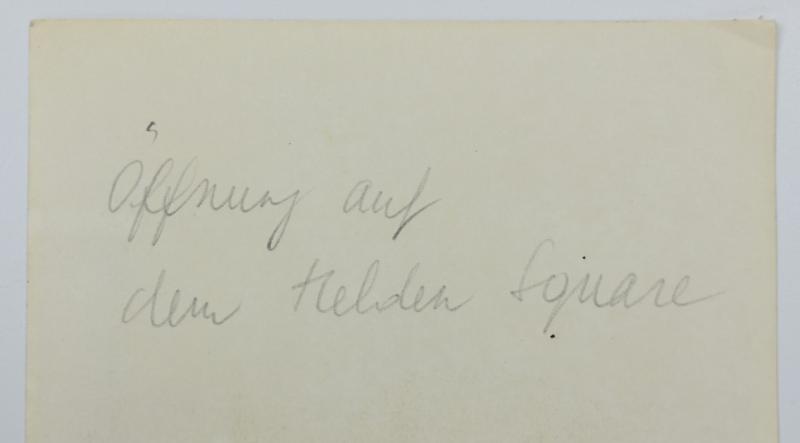 Öffnung auf
dem Helden Square